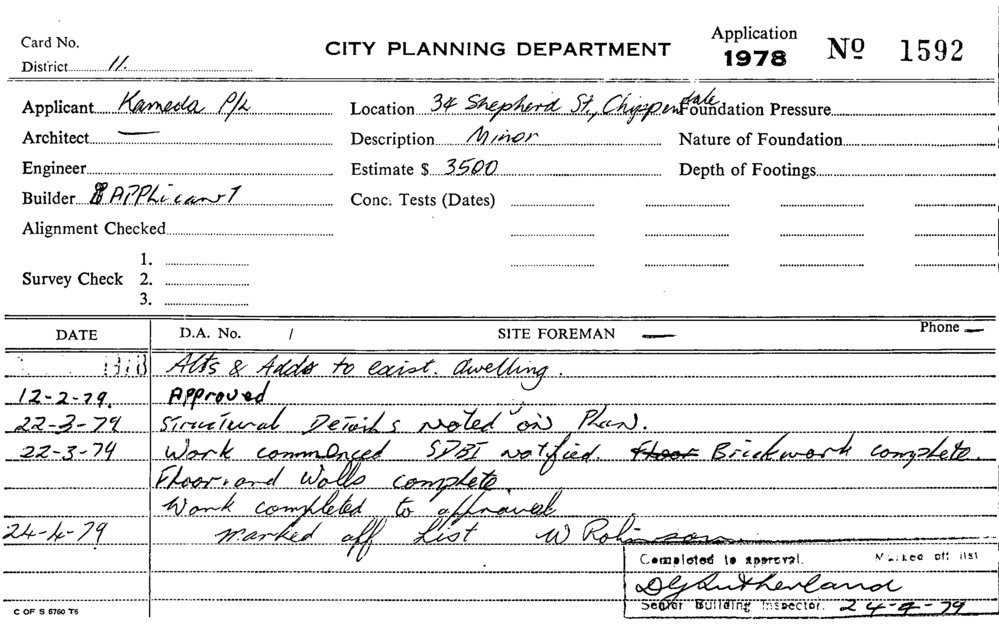 Card No.
CITY PLANNING DEPARTMENT
Application
1978
No 1592
District 11.
Applicant Kameda P/L
Location 34 Shepherd St., Chippendale
Foundation Pressure
Architect —
Description Minor
Nature of Foundation
Engineer
Estimate $ 3500
Depth of Footings
Builder Applicant
Conc. Tests (Dates)
Alignment Checked
1.
Survey Check 2.
3.
DATE D.A. No. / SITE FOREMAN — Phone —
1978 Alts & Adds to exist. dwelling.
12-2-79. Approved
22-3-79 Structural Details noted on Plan.
22-3-79 Work commenced SDBI notified. Floor Brickwork complete.
Floor and Walls complete.
Work completed to approval
24-4-79 marked off List W Robinson
Completed to approval. Marked off list
D G Sutherland
Senior Building Inspector. 24-4-79
C OF S 6760 T6